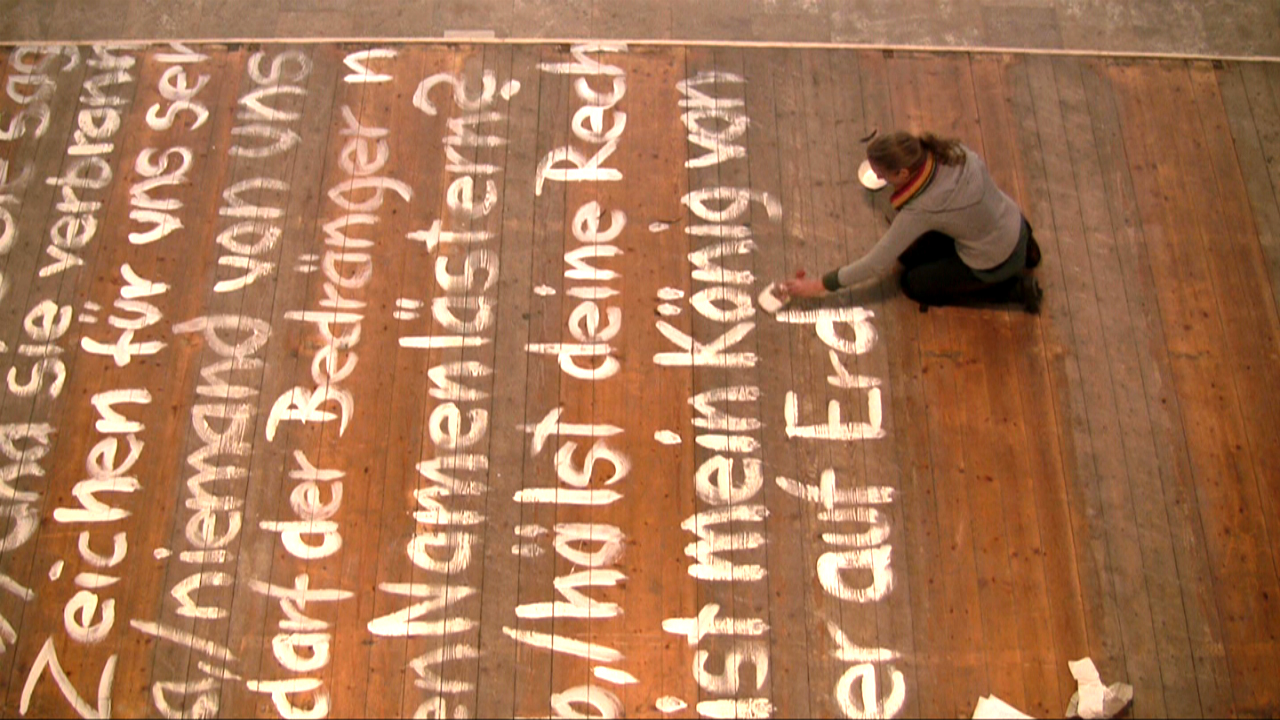 sag
und sie verbrann
Zeichen für uns seh
a,/niemand von uns
dart der Bedränger n
en Namen lästern?
o,/hälst deine Rech
ist mein König von
er auf Erd